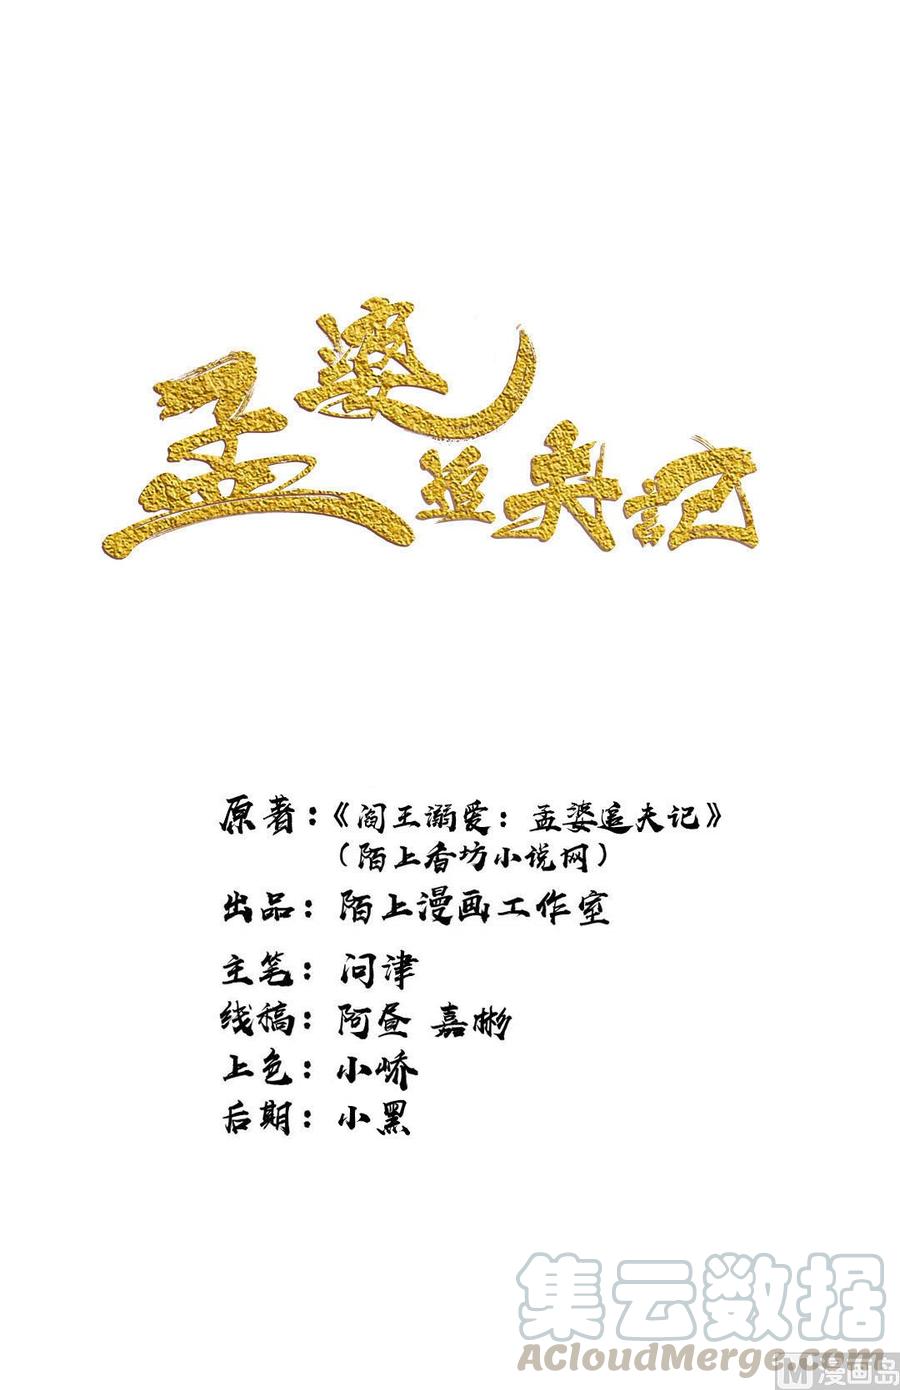 孟婆追夫记
原著：《阎王溺爱：孟婆追夫记》
（陌上香坊小说网）
出品：陌上漫画工作室
主笔：问津
线稿：阿昼 嘉彬
上色：小峤
后期：小黑
集云数据
ACloudMerge.com
M漫画岛